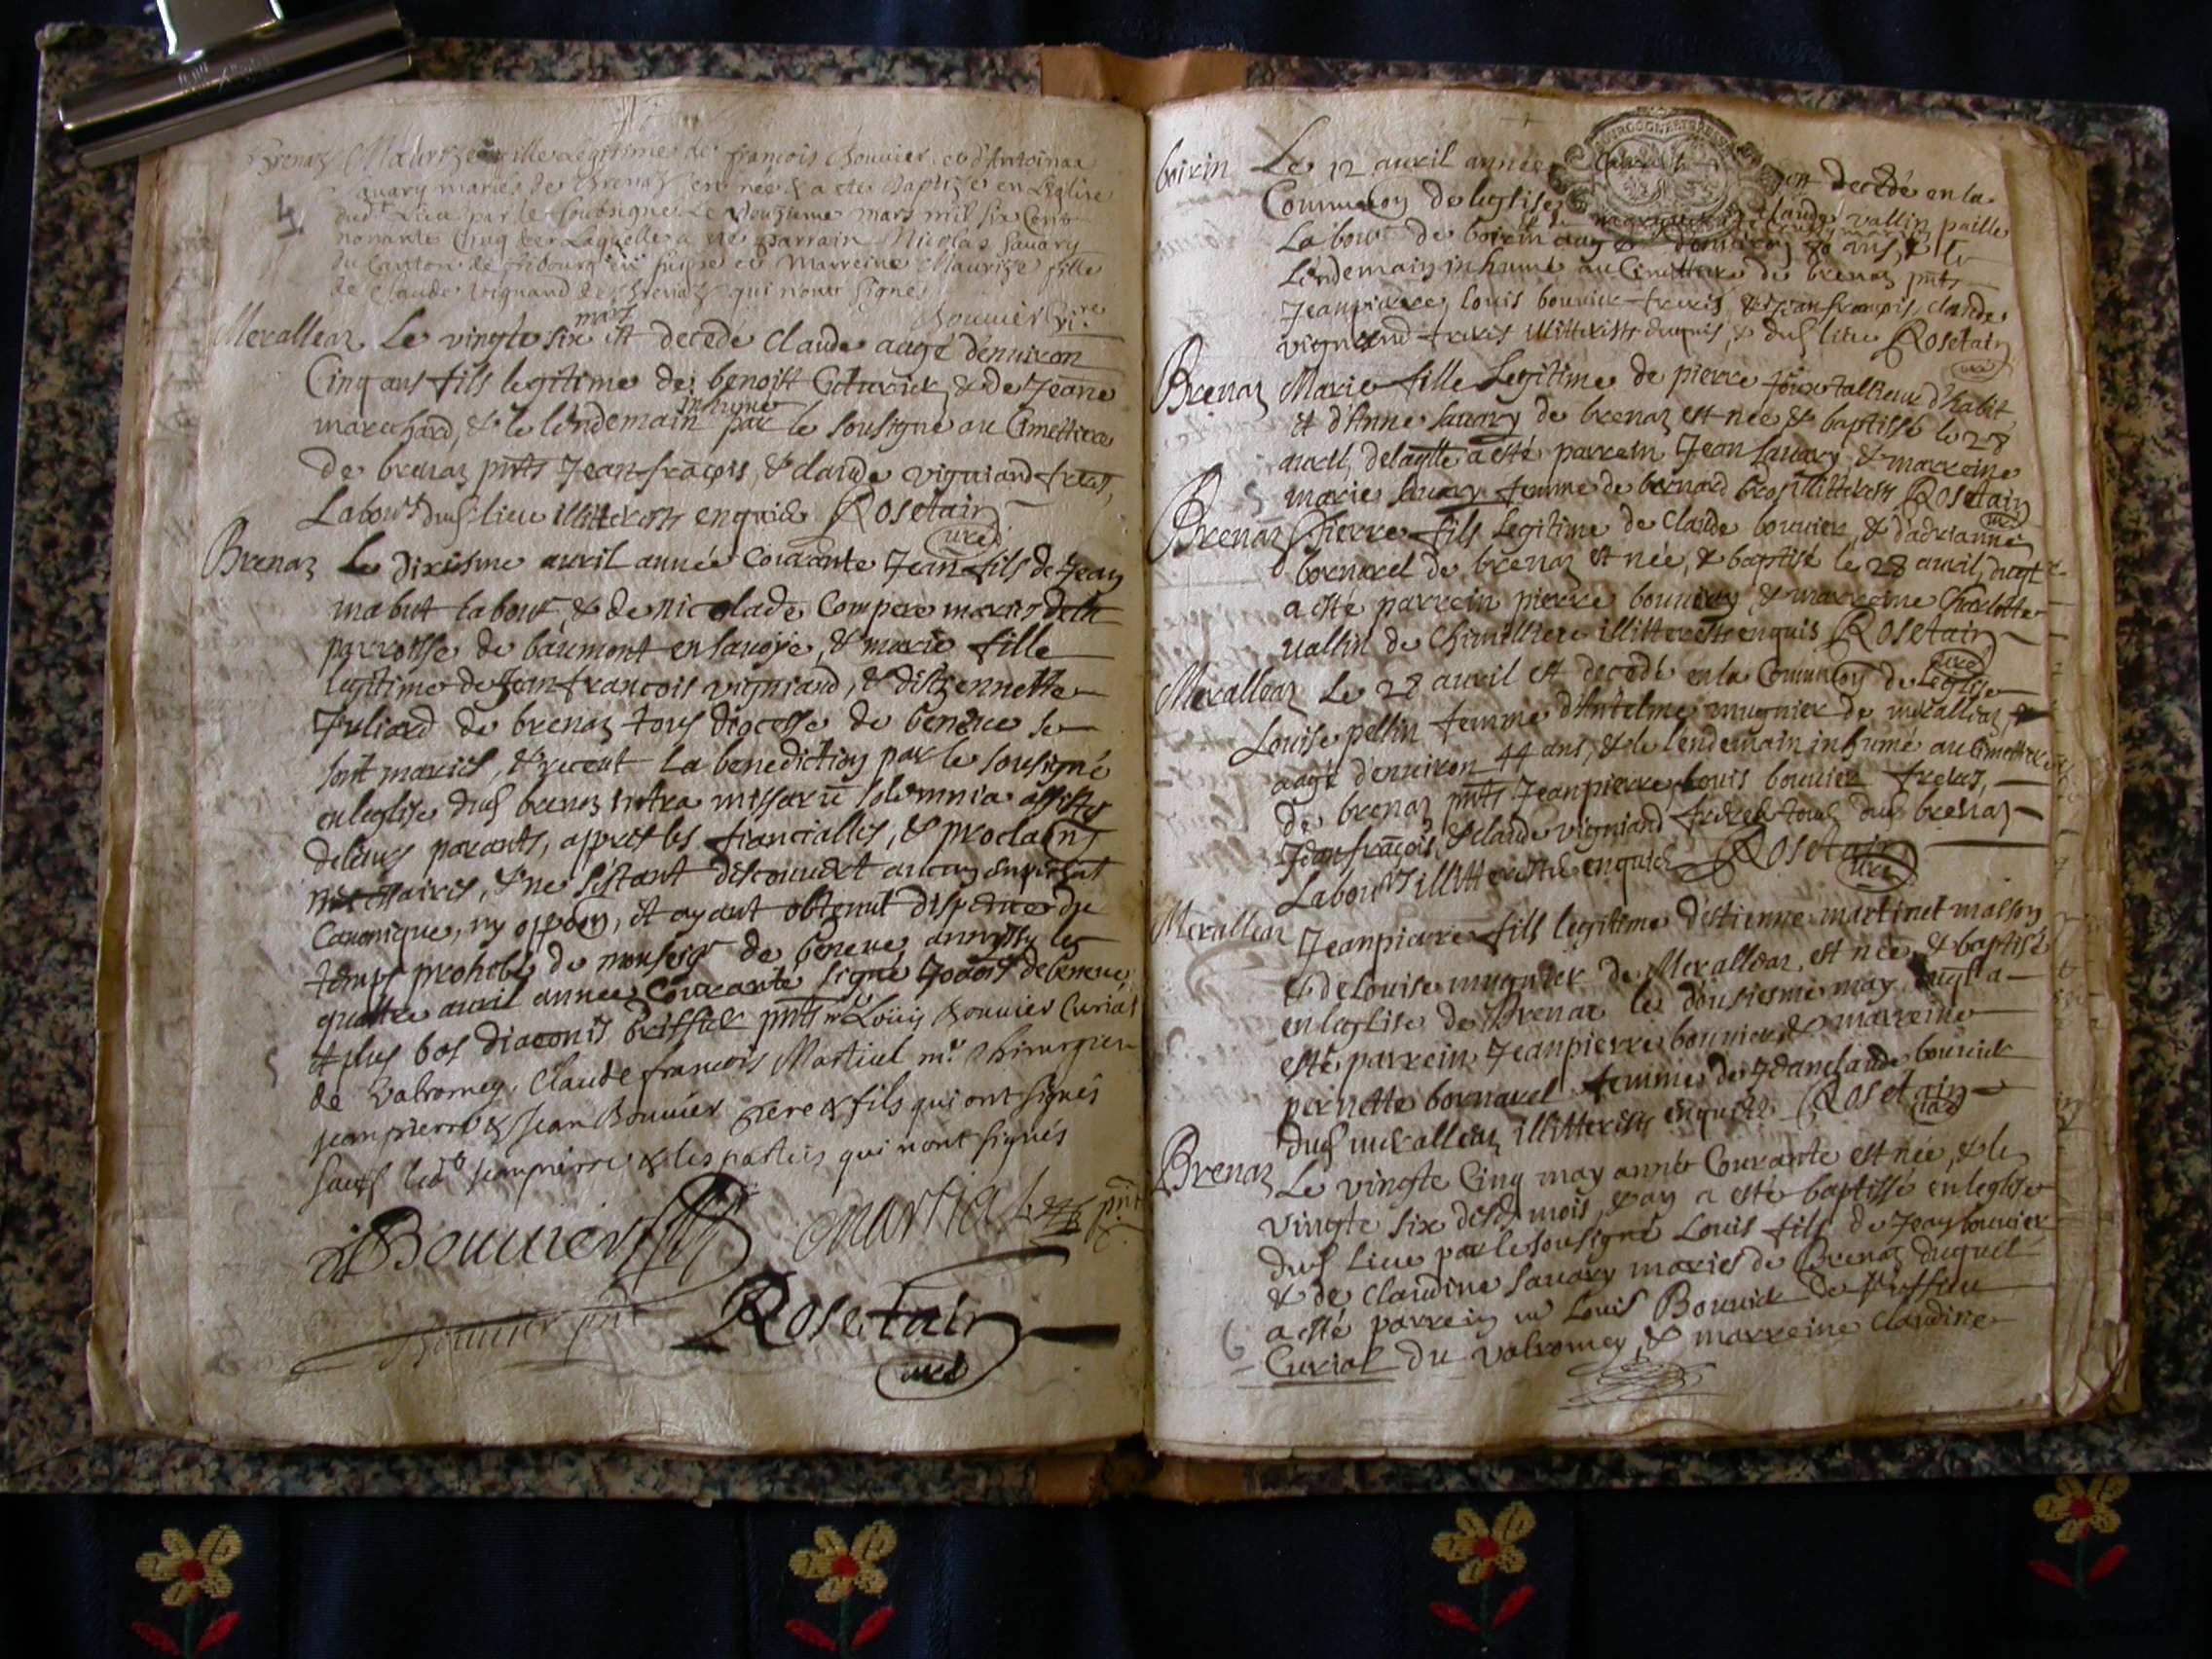 Brenaz Maurize fille Legitime de françois Bouvier et d'Antoinaz
Savary mariés de Brenaz est née & a ete Baptize en L'Eglise
dud. Lieu par le Soubsigné Le douzieme mars mil six Cens
nonante Cinq de Laquelle a été parrain Nicolas Savary
du Canton de fribourg en suisse et Marreine Maurize fille
de Claude Vignand de Brenaz qui n'ont signé
Bouvier vi.re
Meralleaz Le vingte six mars est decede Claude aagé d'environ
Cinq ans fils legitime de benoist & de Jeane
marchand, & le lendemain inhumé par le sousigné au Cimettiere
de brenaz pnts Jean françois, & claude vigniand freres,
Labours dud lieu illitterests enquis Rosetain
curé
Brenaz Le dixiesme avril année Courante Jean fils de Jean
mabut labour & de nicolade Compere mariés de la
parroisse de baumont en savoye, & marie fille
legitime de Jean françois vigniand, & d'istiennette
Juliard de brenaz tous diocesse de Geneve se
sont mariés, & receut La benediction par le sousigné
en leglise dud brenaz intra missarū solemnia assistés
de leurs parants, apprès les fiancialles, & proclaōns
necessaires, & ne s'estant descouvert aucun empechat
Canonique, ny oppōon, et ayant obtenut dispence du
temps prohibé de monseigr de Geneve annyssy le
quattre avril année Courante signé de Geneve,
et plus bas diaconis pnts mr Loüis Bouvier Curial
de Valromey, Claude françois Martial mr Chirurgien
Jeanpierre & Jean Bouvier père & fils qui ont signés
sauf led Jeanpierre & les parties qui n'ont signés
Bouvier Martial pnt
Bouvier pnt Rosetain
curé
boirin Le 12 avril année Courante est decedé en la
Commuōn de leglise Claude vallin paille
Labour de boirin aagé d'environ 70 ans, & le
Lendemain inhumé au Cimettiere de brenaz pnts
Jeanpierre, Louis bouvier freres, & Jean françois, claude
vigniand freres illitterests enquis, & dud lieu Rosetain
curé
Brenaz Marie fille Legitime de pierre tallieur d'habit
et d'Anne savary de brenaz est née & baptissé le 28
avril, de laqlle a esté parrein Jean savary & marreine
marie savary femme de bernard illitterests Rosetain
curé
Brenaz Pierre fils Legitime de Claude bouvier, & d'adrianne
bornarel de brenaz est née, & baptisé le 28 avril, duqt
a esté parrein pierre bouvier, & marreine Charlotte
vallin de Chimilliere illitterests enquis Rosetain
curé
Meralleaz Le 28 avril est decedé en la Commuōn de Leglise
Louise pellin femme d'Antelme mugnier de merallieaz,
aagé d'environ 44 ans, & le lendemain inhumé au Cimettiere
de brenaz pnts Jeanpierre, Louis bouvier freres,
Jean françois, & claude vigniand freres tous dud brenaz
Labours illitterests enquis Rosetain
curé
Merallear Jeanpierre fils legitime d'estienne martinet masson
& de Louise mugnier de Merallear, est née, & baptisé
en leglise de Brenaz le dousiesme may, duql a
esté parrein Jeanpierre bouvier, & marreine
pernette bornarel femme de Jean claude bouvier
dud merallear illitterests enquis Rosetain
curé
Brenaz Le vingte Cinq may année Courante est née, & le
vingte six desd mois, & an a esté baptissé en leglise
dud Lieu par le sousigné Louis fils de Jean bouvier
& de Claudine Savary mariés de Brenaz duquel
a esté parrein mr Louis Bouvier de
Curial du Valromey, & marreine Claudine